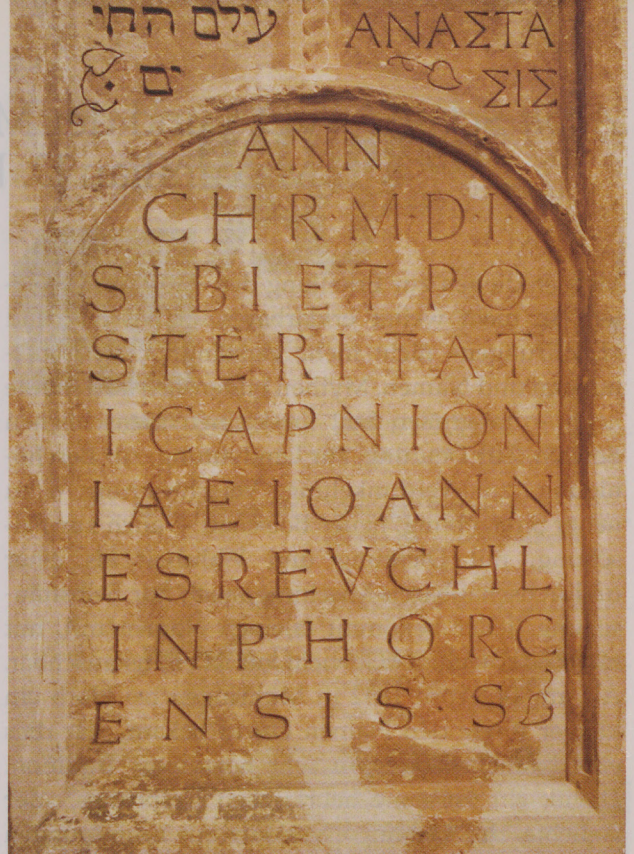 עלם החי
ים
ΑΝΑΣΤΑ
ΣΙΣ
ANN
CHR·M·D·I·
SIBI ET PO
STERITAT
I CAPNION
IAE IOANN
ES REVCHL
IN PHORC
ENSIS S·S